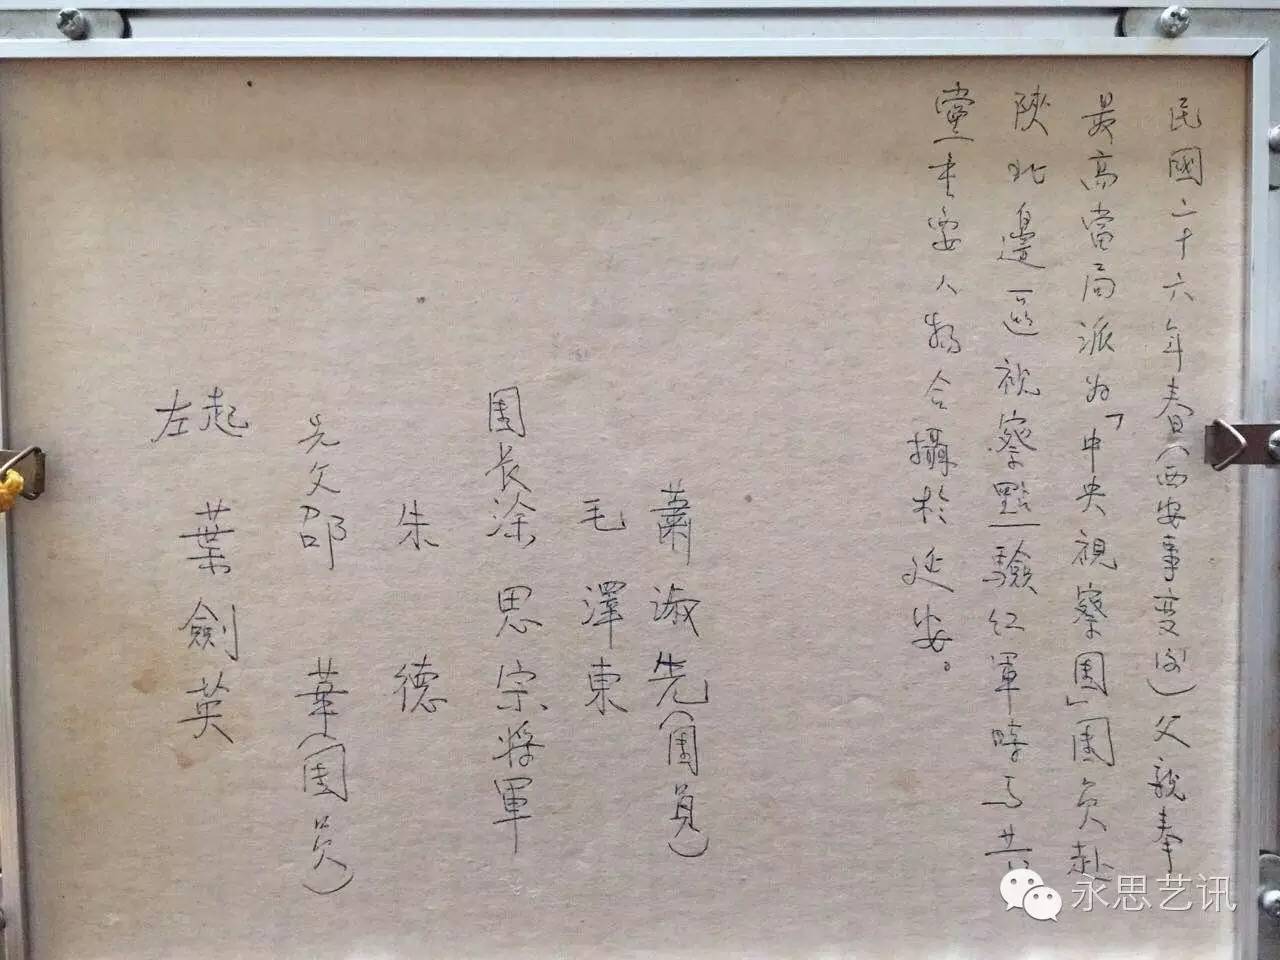 民國二十六年春(西安事变後)父親奉
最高當局派为「中央視察團」團员赴
陝北邊區視察點驗红軍時与共
黨重要人物合攝於延安。
蕭淑先(團員)
毛澤東
團長涂思宗將軍
朱德
先父邵華(團员)
左起
葉劍英
永思艺讯